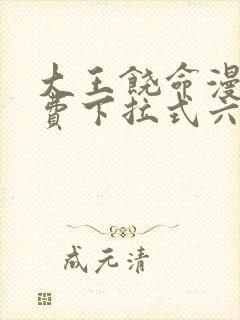 大王饶命漫
费下拉式六
成元清